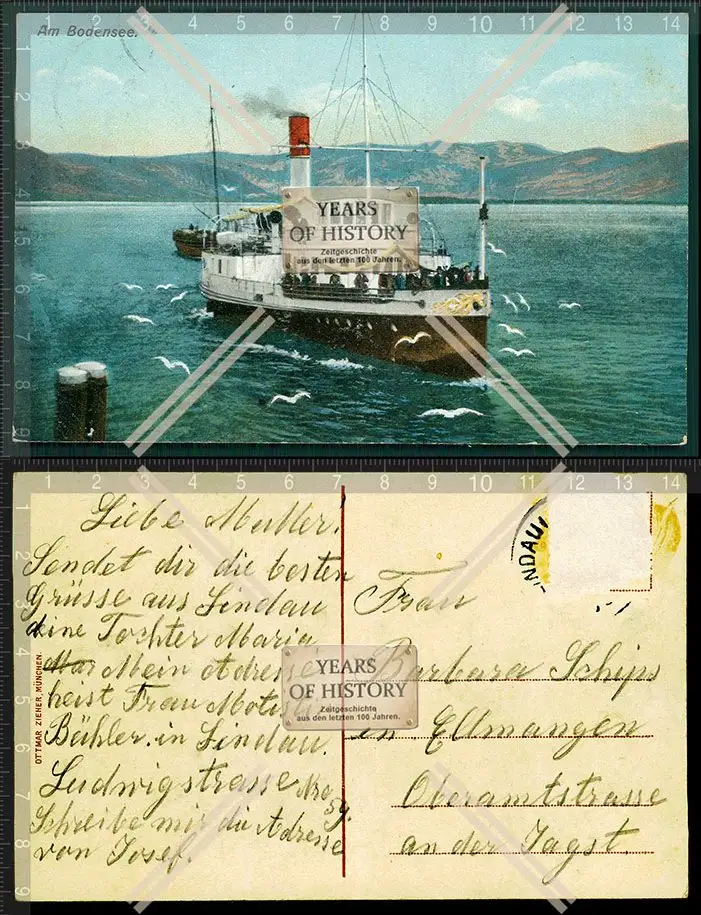 Am Bodensee.
YEARS
OF HISTORY
Zeitgeschichte
aus den letzten 100 Jahren.
Liebe Mutter!
Sendet dir die besten
Grüsse aus Lindau
deine Tochter Maria
Mein Adresse
heist Frau
Bühler. in Lindau.
Ludwigstrasse Nro
59.
Schreibe mir die Adresse
von Josef.
OTTMAR ZIEHER, MÜNCHEN.
LINDAU
Frau
Barbara Schips
in Ellwangen
Oberamtstrasse
an der Jagst.
YEARS
OF HISTORY
Zeitgeschichte
aus den letzten 100 Jahren.